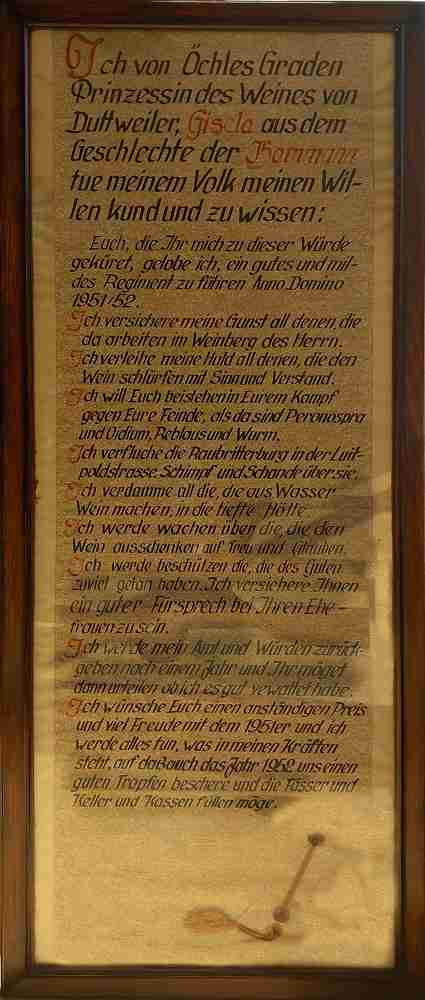 Ich von Öchles Graden
Prinzessin des Weines von
Duttweiler, Gisela aus dem
Geschlechte der
tue meinem Volk meinen Wil-
len kund und zu wissen:
Euch, die Ihr mich zu dieser Würde
geküret, gelobe ich, ein gutes und mil-
des Regiment zu führen Anno Domino
1951/52.
Ich versichere meine Gunst all denen, die
da arbeiten im Weinberg des Herrn.
Ich verleihe meine Huld all denen, die den
Wein schlürfen mit Sinn und Verstand.
Ich will Euch beistehen in Eurem Kampf
gegen Eure Feinde, als da sind Peronospra
und Oidium, Reblaus und Wurm.
Ich verfluche die Raubritterburg in der Luit-
poldstrasse. Schimpf und Schande über sie.
Ich verdamme all die, die aus Wasser
Wein machen, in die tiefste Hölle
Ich werde wachen über die, die den
Wein ausschenken auf Treu und Glauben.
Ich werde beschützen die, die des Guten
zuviel getan haben. Ich versichere Ihnen
ein guter Fürsprech bei Ihren Ehe-
frauen zu sein.
Ich werde mein Amt und Würden zurück-
geben nach einem Jahr und Ihr möget
dann urteilen ob ich es gut vewaltet habe.
Ich wünsche Euch einen anständigen Preis
und viel Freude mit dem 1951er und ich
werde alles tun, was in meinen Kräften
steht, auf daß auch das Jahr 1952 uns einen
guten Tropfen beschere und die Fässer und
Keller und Kassen füllen möge.